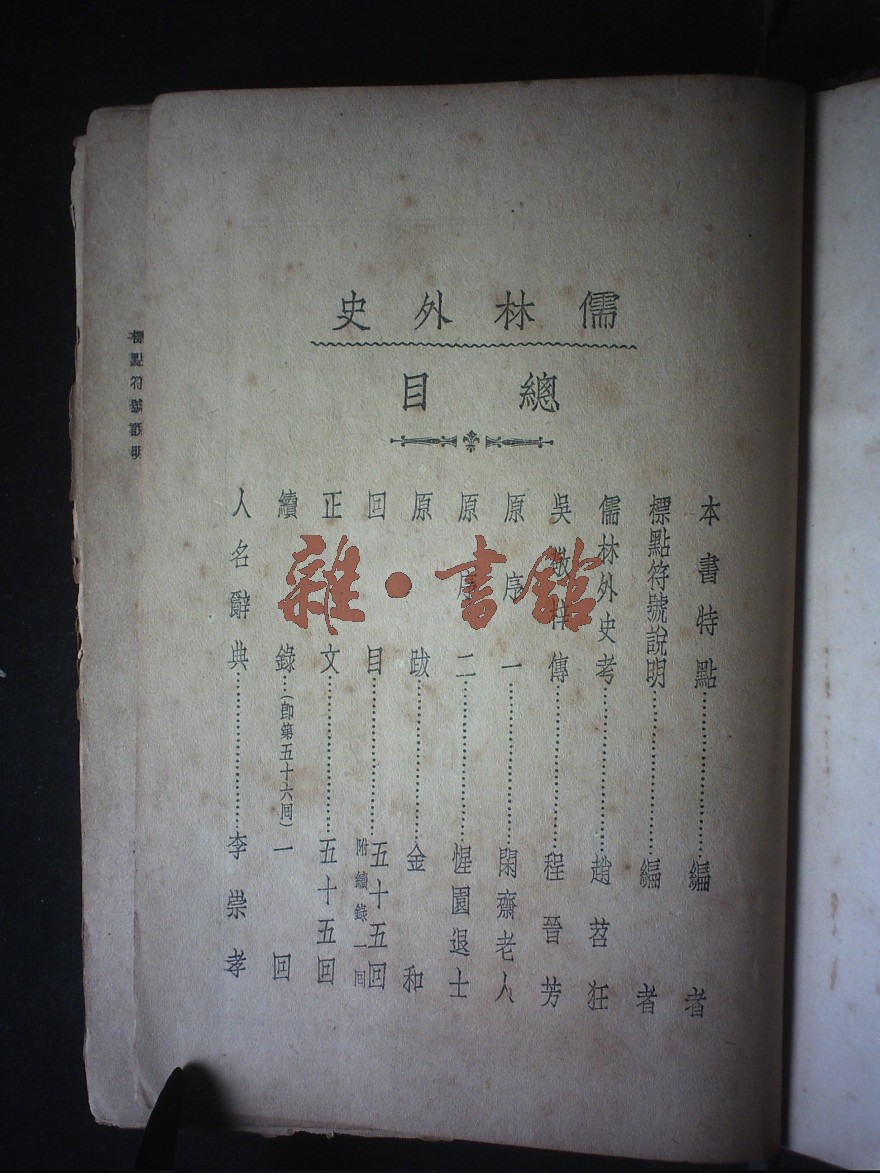 儒林外史
總目
本書特點……編者
標點符號說明……編者
儒林外史考……趙苕狂
吳敬梓傳……程晉芳
原序一……閑齋老人
原序二……惺園退士
原跋……金和
回目……五十五回 附續錄一回
正文……五十五回
續錄…(卽第五十六回)一回
人名辭典……李崇孝
標點符號說明
雜·書館